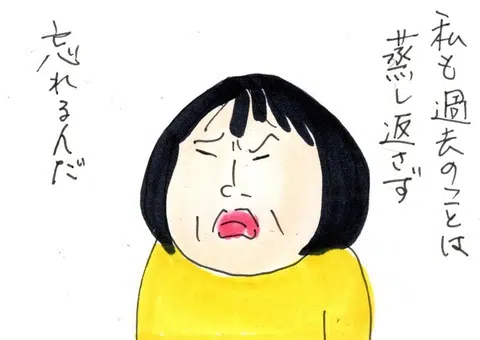 私も過去のことは
蒸し返さず
忘れるんだ